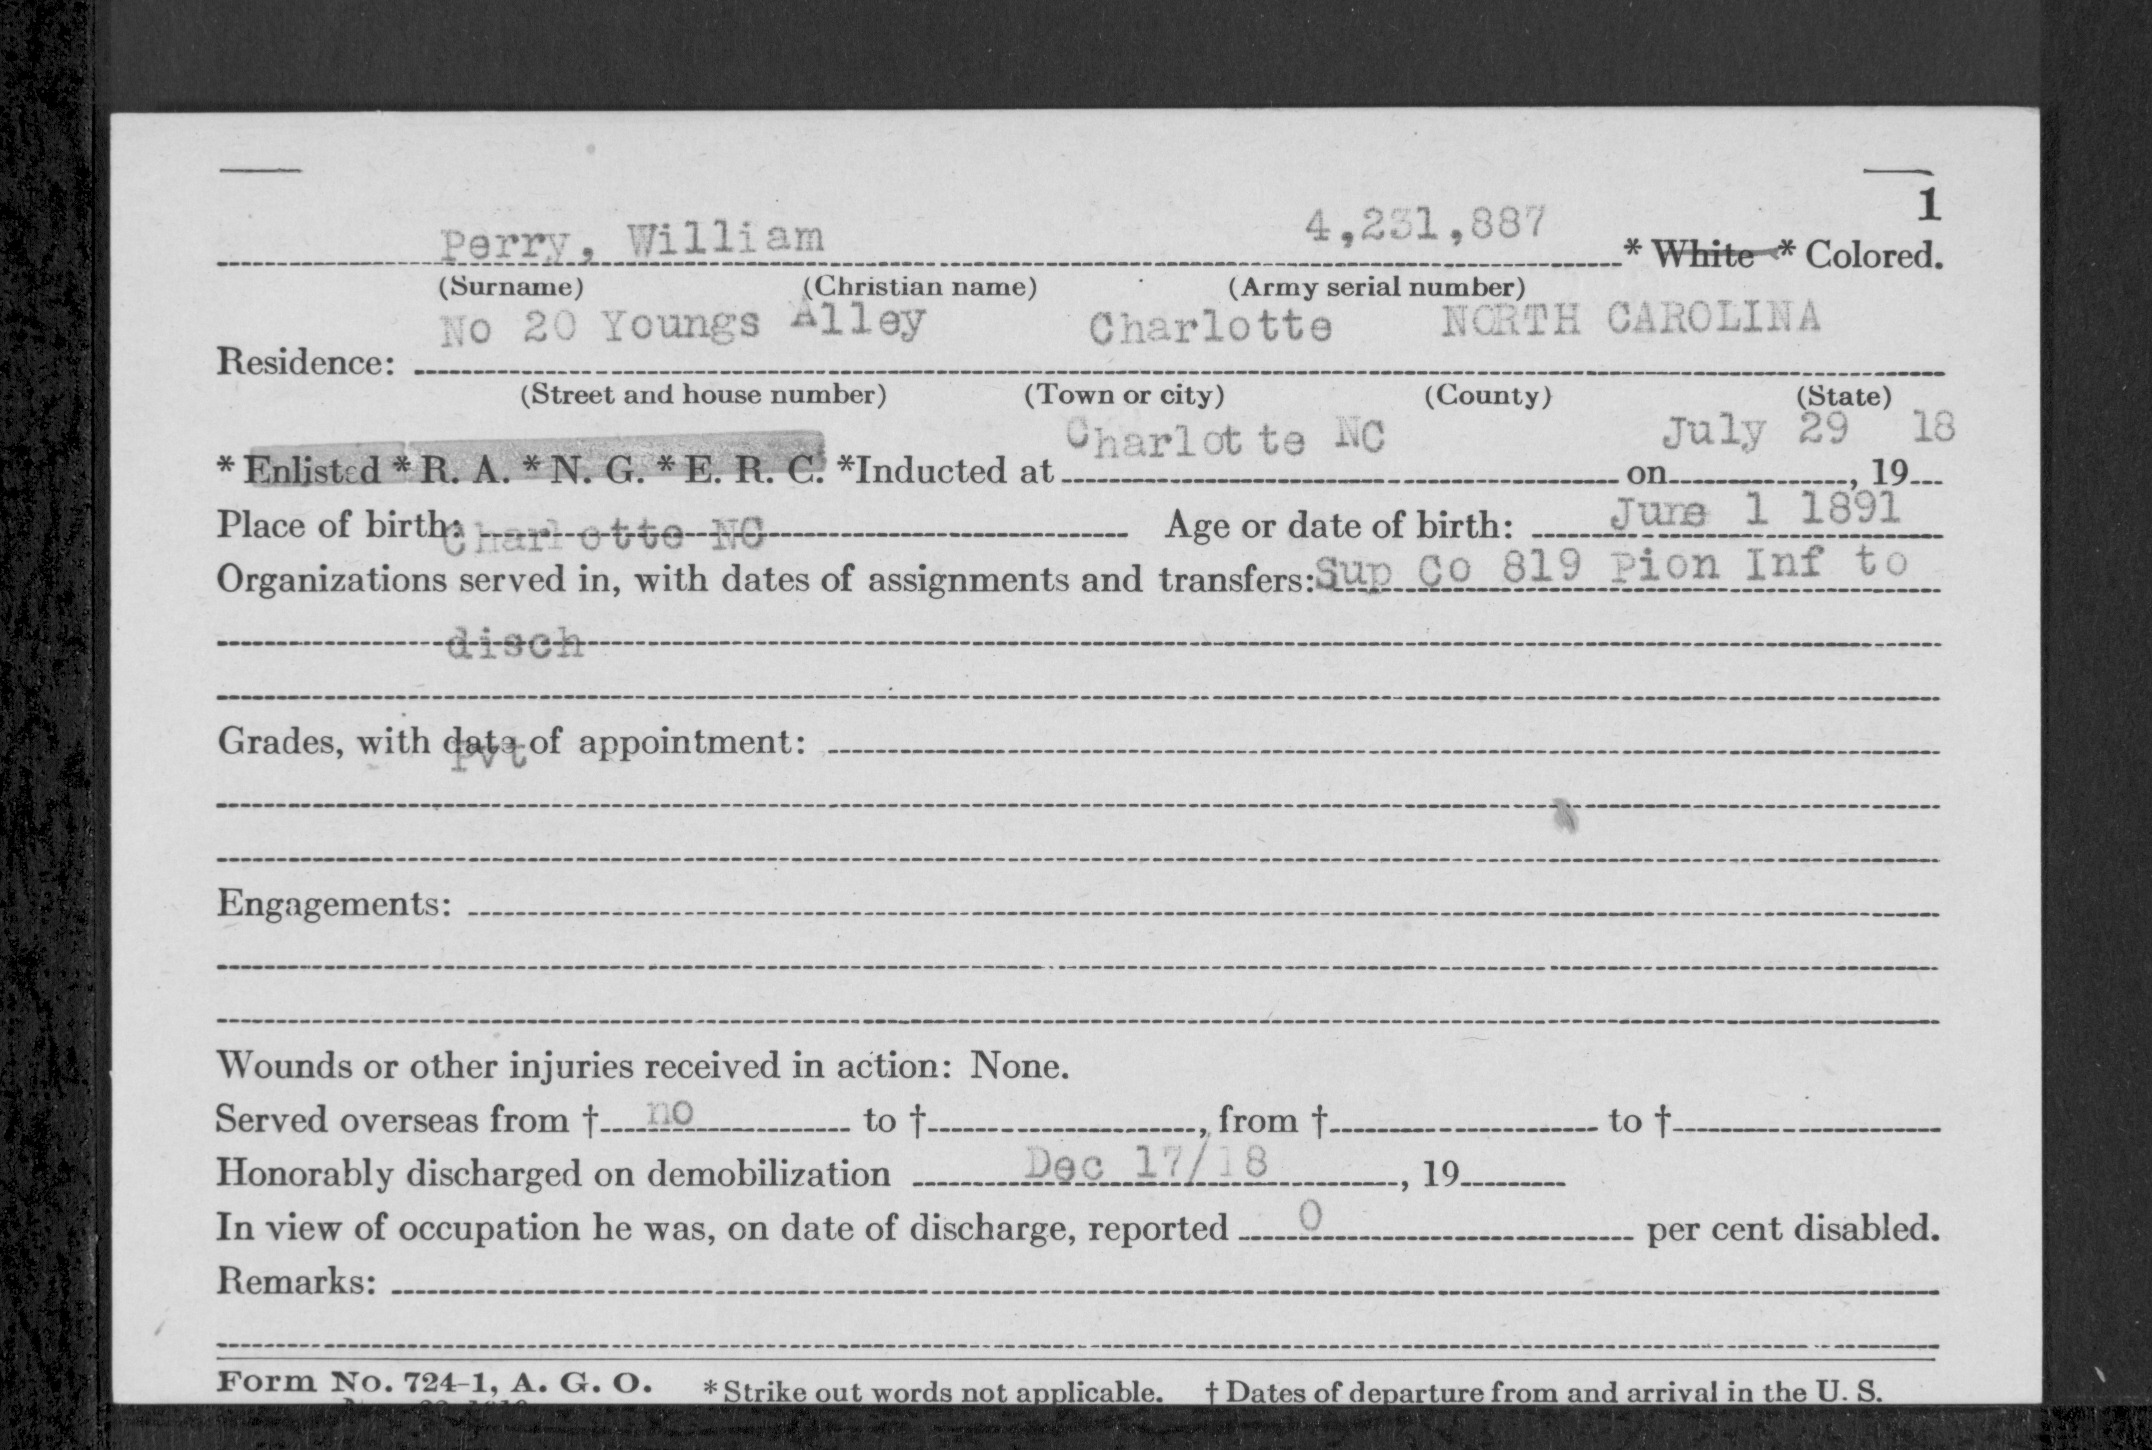 1
Perry, William 4,231,887 * White * Colored.
(Surname) (Christian name) (Army serial number)
No 20 Youngs Alley Charlotte NORTH CAROLINA
Residence:
(Street and house number) (Town or city) (County) (State)
* Enlisted * R. A. * N. G. * E. R. C. *Inducted at Charlotte NC on July 29, 19 18
Place of birth: Charlotte NC Age or date of birth: June 1 1891
Organizations served in, with dates of assignments and transfers: Sup Co 819 Pion Inf to
disch
Grades, with date of appointment:
Pvt
Engagements:
Wounds or other injuries received in action: None.
Served overseas from † no to †, from † to †
Honorably discharged on demobilization Dec 17/18, 19
In view of occupation he was, on date of discharge, reported 0 per cent disabled.
Remarks:
Form No. 724-1, A. G. O. * Strike out words not applicable. † Dates of departure from and arrival in the U. S.